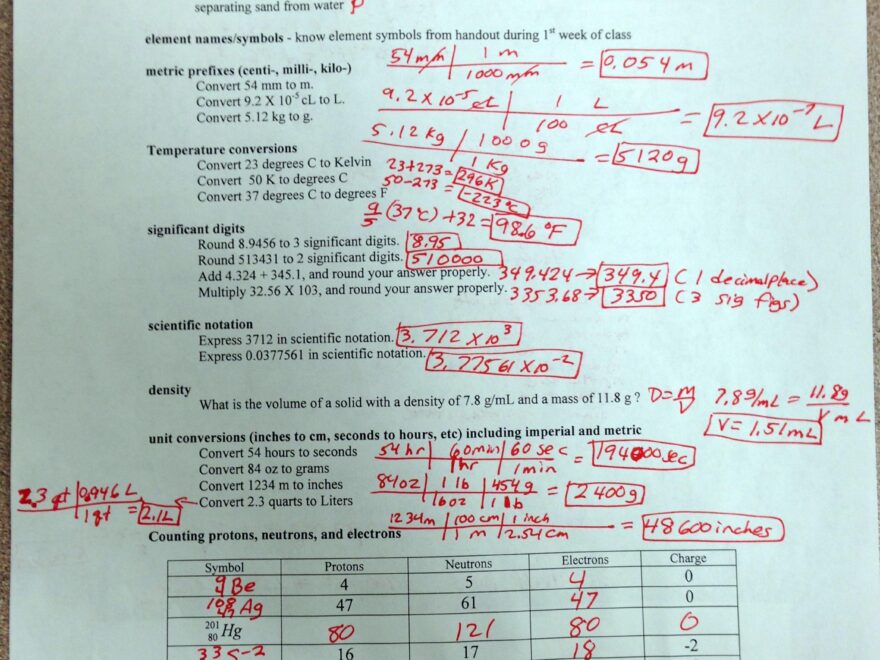 separating sand from water P
element names/symbols - know element symbols from handout during 1st week of class
54 mm | 1 m
1000 mm = 0.054 m
metric prefixes (centi-, milli-, kilo-)
Convert 54 mm to m.
Convert 9.2 X 10⁻⁵ cL to L.
Convert 5.12 kg to g.
9.2 X 10⁻⁵ cL | 1 L
100 cL = 9.2 X 10⁻⁷ L
5.12 Kg | 1000 g
1 Kg = 5120 g
Temperature conversions
Convert 23 degrees C to Kelvin 23+273= 296K
Convert 50 K to degrees C 50-273 = -223°C
Convert 37 degrees C to degrees F
9/5 (37°C) +32 = 98.6 °F
significant digits
Round 8.9456 to 3 significant digits. 8.95
Round 513431 to 2 significant digits. 510000
Add 4.324 + 345.1, and round your answer properly. 349.424 → 349.4 (1 decimal place)
Multiply 32.56 X 103, and round your answer properly. 3353.68 → 3350 (3 sig figs)
scientific notation
Express 3712 in scientific notation. 3.712 X 10³
Express 0.0377561 in scientific notation. 3.77561 X 10⁻²
density
What is the volume of a solid with a density of 7.8 g/mL and a mass of 11.8 g ? D= m/V 7.8 g/mL = 11.8g / V mL
V= 1.51 mL
unit conversions (inches to cm, seconds to hours, etc) including imperial and metric
Convert 54 hours to seconds 54 hr | 60 min | 60 sec
1 hr | 1 min = 194000 sec
Convert 84 oz to grams 84 oz | 1 lb | 454 g
16 oz | 1 lb = 2400 g
Convert 1234 m to inches
Convert 2.3 quarts to Liters
2.3 qt | 0.946 L
1 qt = 2.1L
1234m | 100 cm | 1 inch
1 m | 2.54 cm = 48600 inches
Counting protons, neutrons, and electrons
Symbol Protons Neutrons Electrons Charge
9 4 Be 4 5 4 0
108 47 Ag 47 61 47 0
201 80 Hg 80 121 80 0
33 S-2 16 17 18 -2